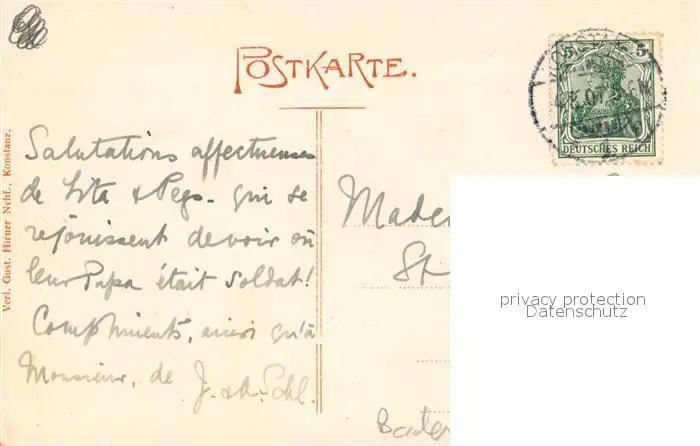 POSTKARTE.
5 5
DEUTSCHES REICH
Verl. Gust. Hirner Nchf., Konstanz.
Salutations affectueuses
de Lita & Pegs. qui se
réjouissent de voir où
leur Papa était soldat!
Compliments, ainsi qu'à
Monsieur, de J. & A. Schl.
Madem
St
Baden
privacy protection
Datenschutz